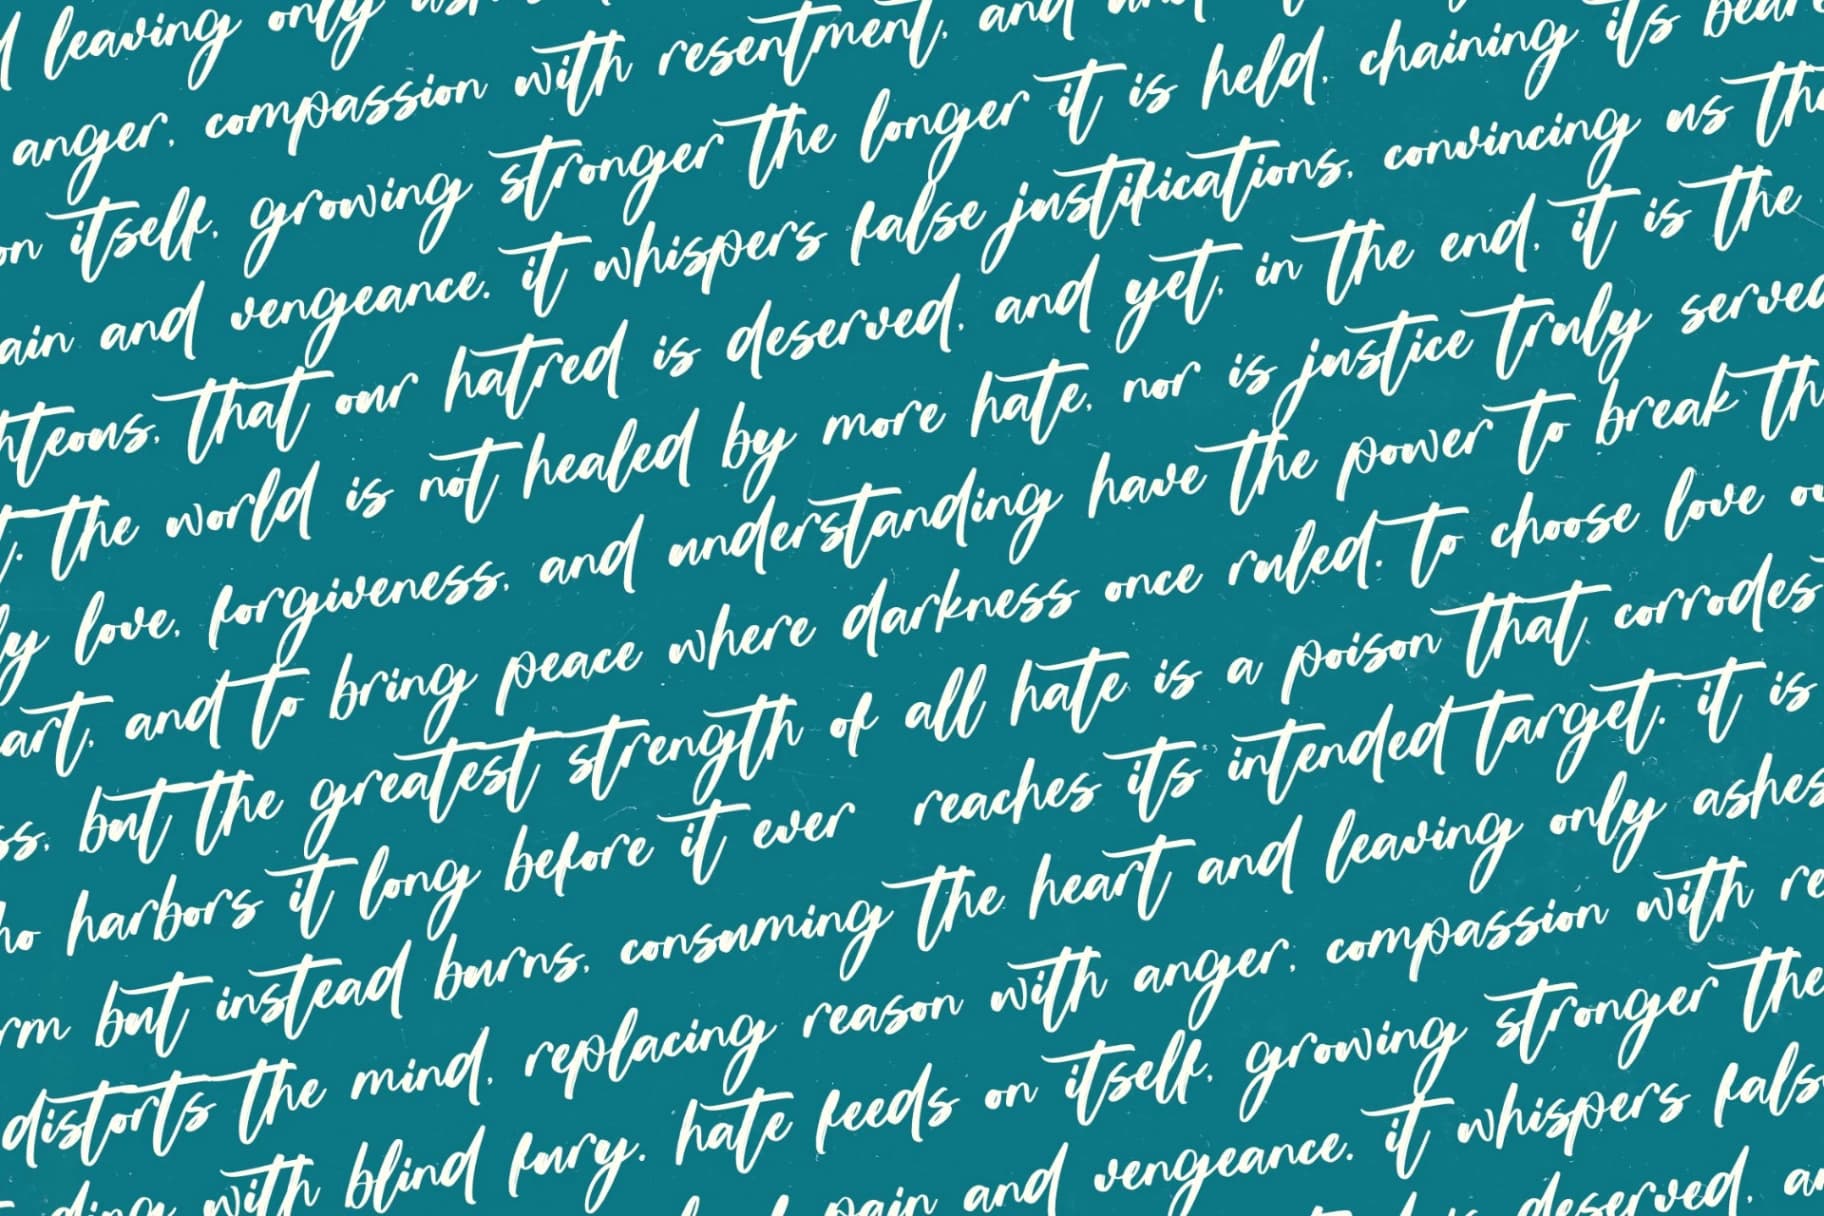 leaving only
anger, compassion with resentment, and
on itself, growing stronger the longer it is held, chaining its
and vengeance. it whispers false justifications, convincing us
that our hatred is deserved, and yet, in the end, it is the
the world is not healed by more hate, nor is justice truly served
love, forgiveness, and understanding have the power to break
and to bring peace where darkness once ruled. to choose love
but the greatest strength of all hate is a poison that corrodes
harbors it long before it ever reaches its intended target. it is
but instead burns, consuming the heart and leaving only ashes
distorts the mind, replacing reason with anger, compassion with
with blind fury. hate feeds on itself, growing stronger the
pain and vengeance. it whispers
deserved,